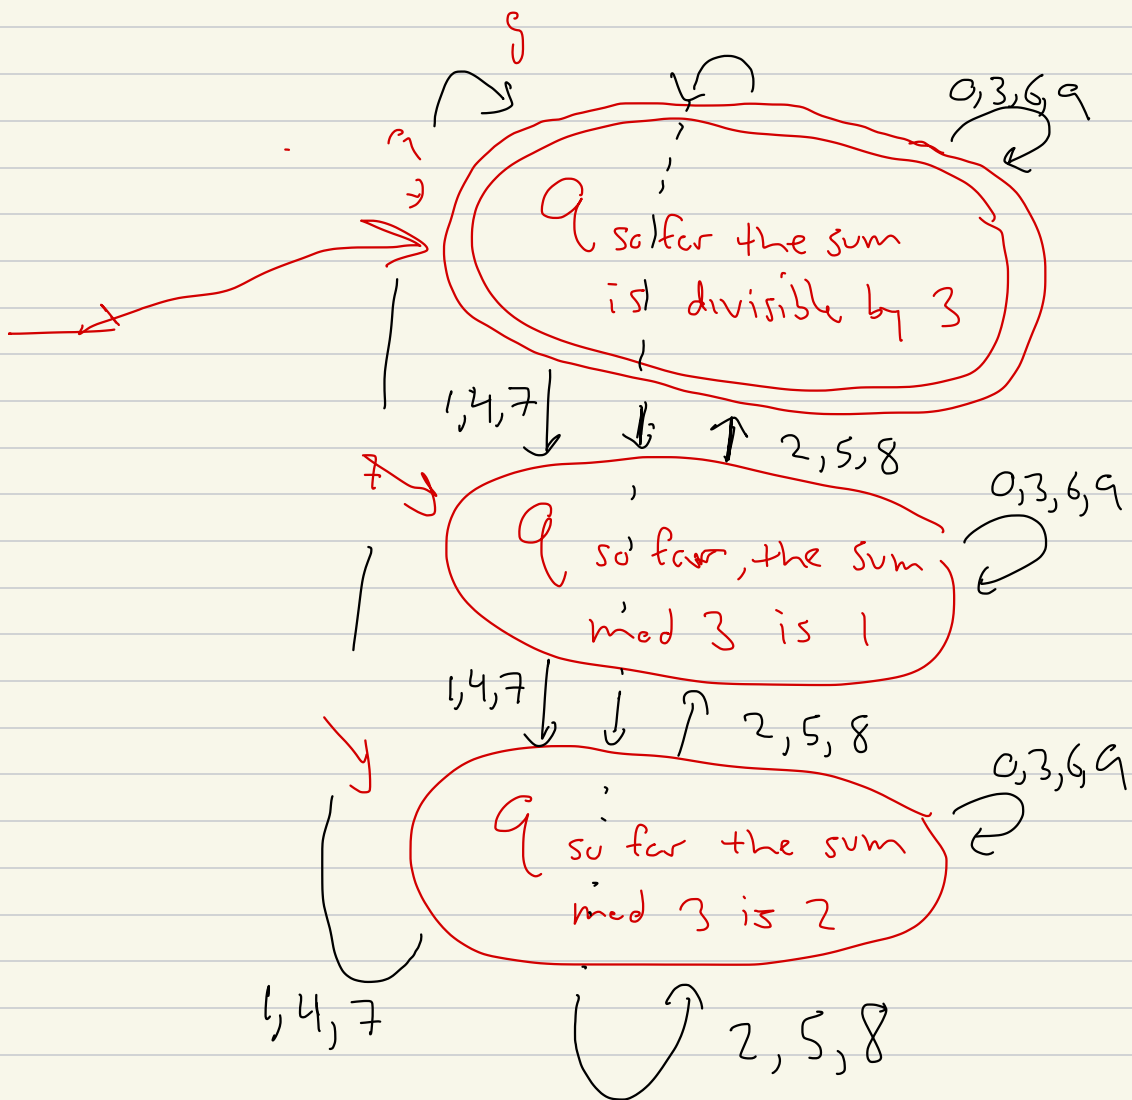 0,3,6,9
q so far the sum
is divisible by 3
1,4,7
2,5,8
0,3,6,9
q so far, the sum
mod 3 is 1
1,4,7
2,5,8
0,3,6,9
q so far the sum
mod 3 is 2
1,4,7
2,5,8